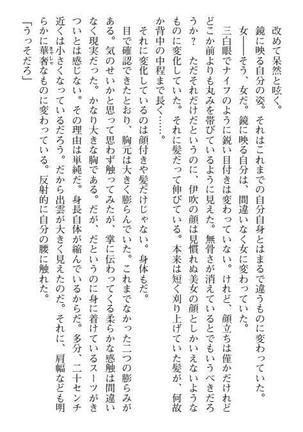 改めて呆然と呟く。
鏡に映る自分の姿。それはこれまでの自分自身とはまるで違うものに変わっていた。
女――そう、女だ。鏡に映る自分は、間違いなく女に変わっていた。
三白眼でナイフのように鋭い目付きは変わっていない。けれど、顔立ちは僅かだけれど
どこか前よりも丸みを帯びているように見えた。無骨さが消えているとでもいうべきだろ
うか？　ただそれだけだというのに、伊吹の顔は見慣れぬ美女の顔としかいえないような
ものに変化していた。それに髪だって伸びている。本来は短く刈り上げていた髪が、何故
か背中の中程まで長く……。
それに変化しているのは顔付きや髪だけじゃない。身体もだ。
目で確認できたとおり、胸元は大きく膨らんでいた。これまでなかった二つの膨らみが
ある。気のせいかと思って思わず触ってみたが、掌に伝わってくる柔らかな感触は間違い
なく現実だった。かなり大きな胸である。だが、だというのに身に着けているスーツがき
ついとは感じない。その理由は単純だ。身長自体が縮んでいるからだ。多分、二十センチ
近くは小さくなっているだろう。だから出雲が大きく見えたのだ。それに、肩幅なども明
らかに華奢なものに変わっている。反射的に自分の腰に触れた。
「うっそだろ」